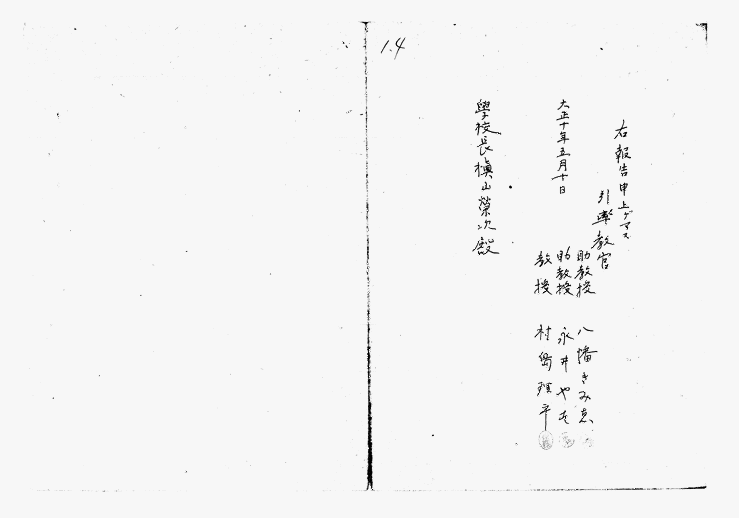 1.4
右報告申上ゲマス
引率教官
助教授 八幡きみゑ
助教授 永井やそ
教授 村島理平
大正十年五月十日
學校長槇山榮次殿